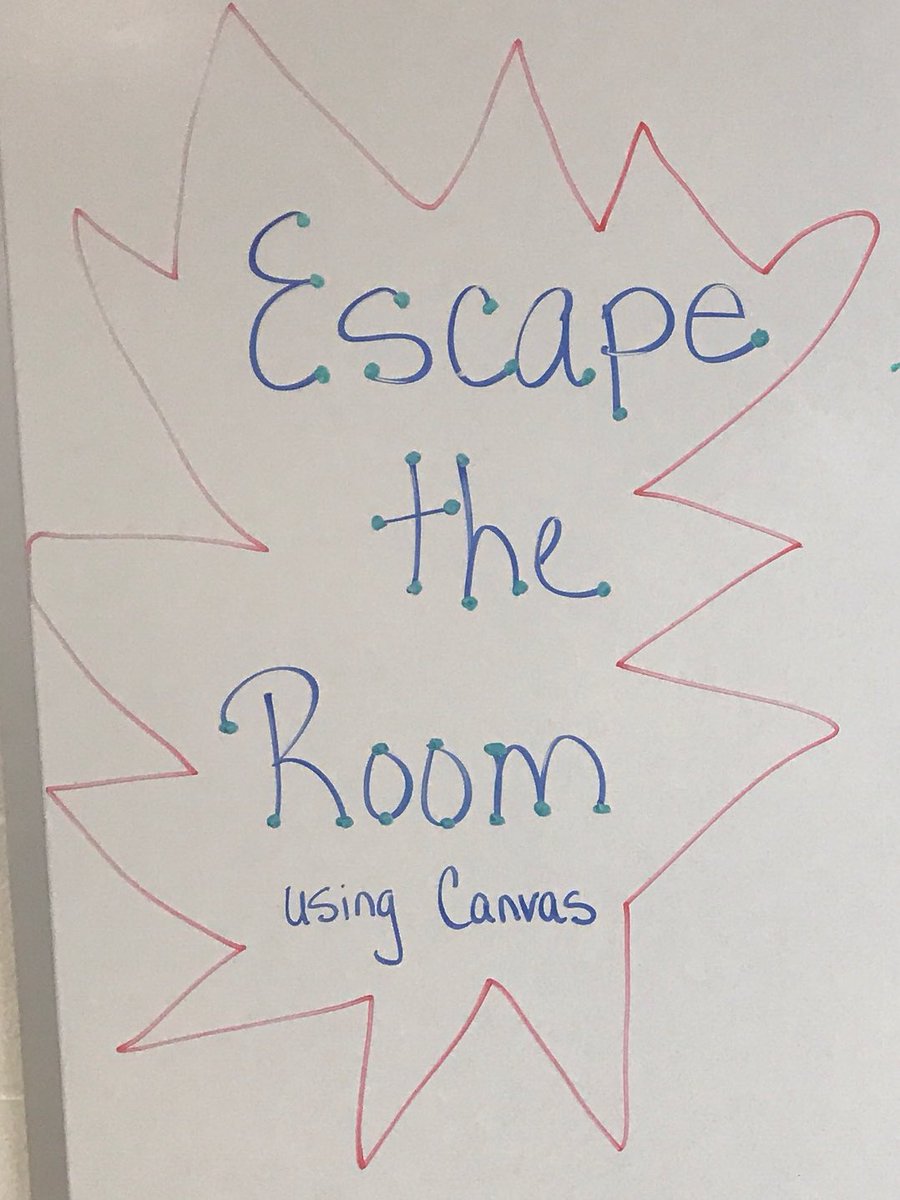 Escape
the
Room
using Canvas